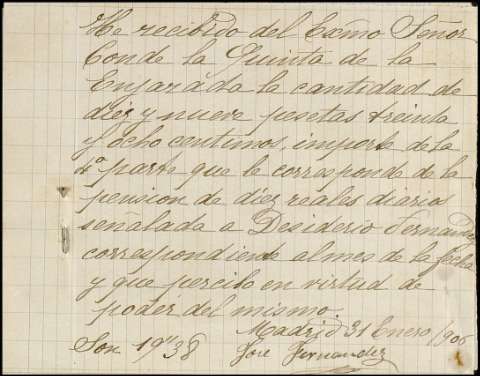 He recibido del Exmo Señor
Conde la Quinta de la
Enjarada la cantidad de
diez y nueve pesetas treinta
y ocho centimos, importe de la
4ª parte que le corresponde de la
pension de diez reales diarios
señalada a Desiderio Fernandez
correspondiente al mes de la fecha
y que percibo en virtud de
poder del mismo.
Madrid 31 Enero 1906
Son 19"38 José Fernandez